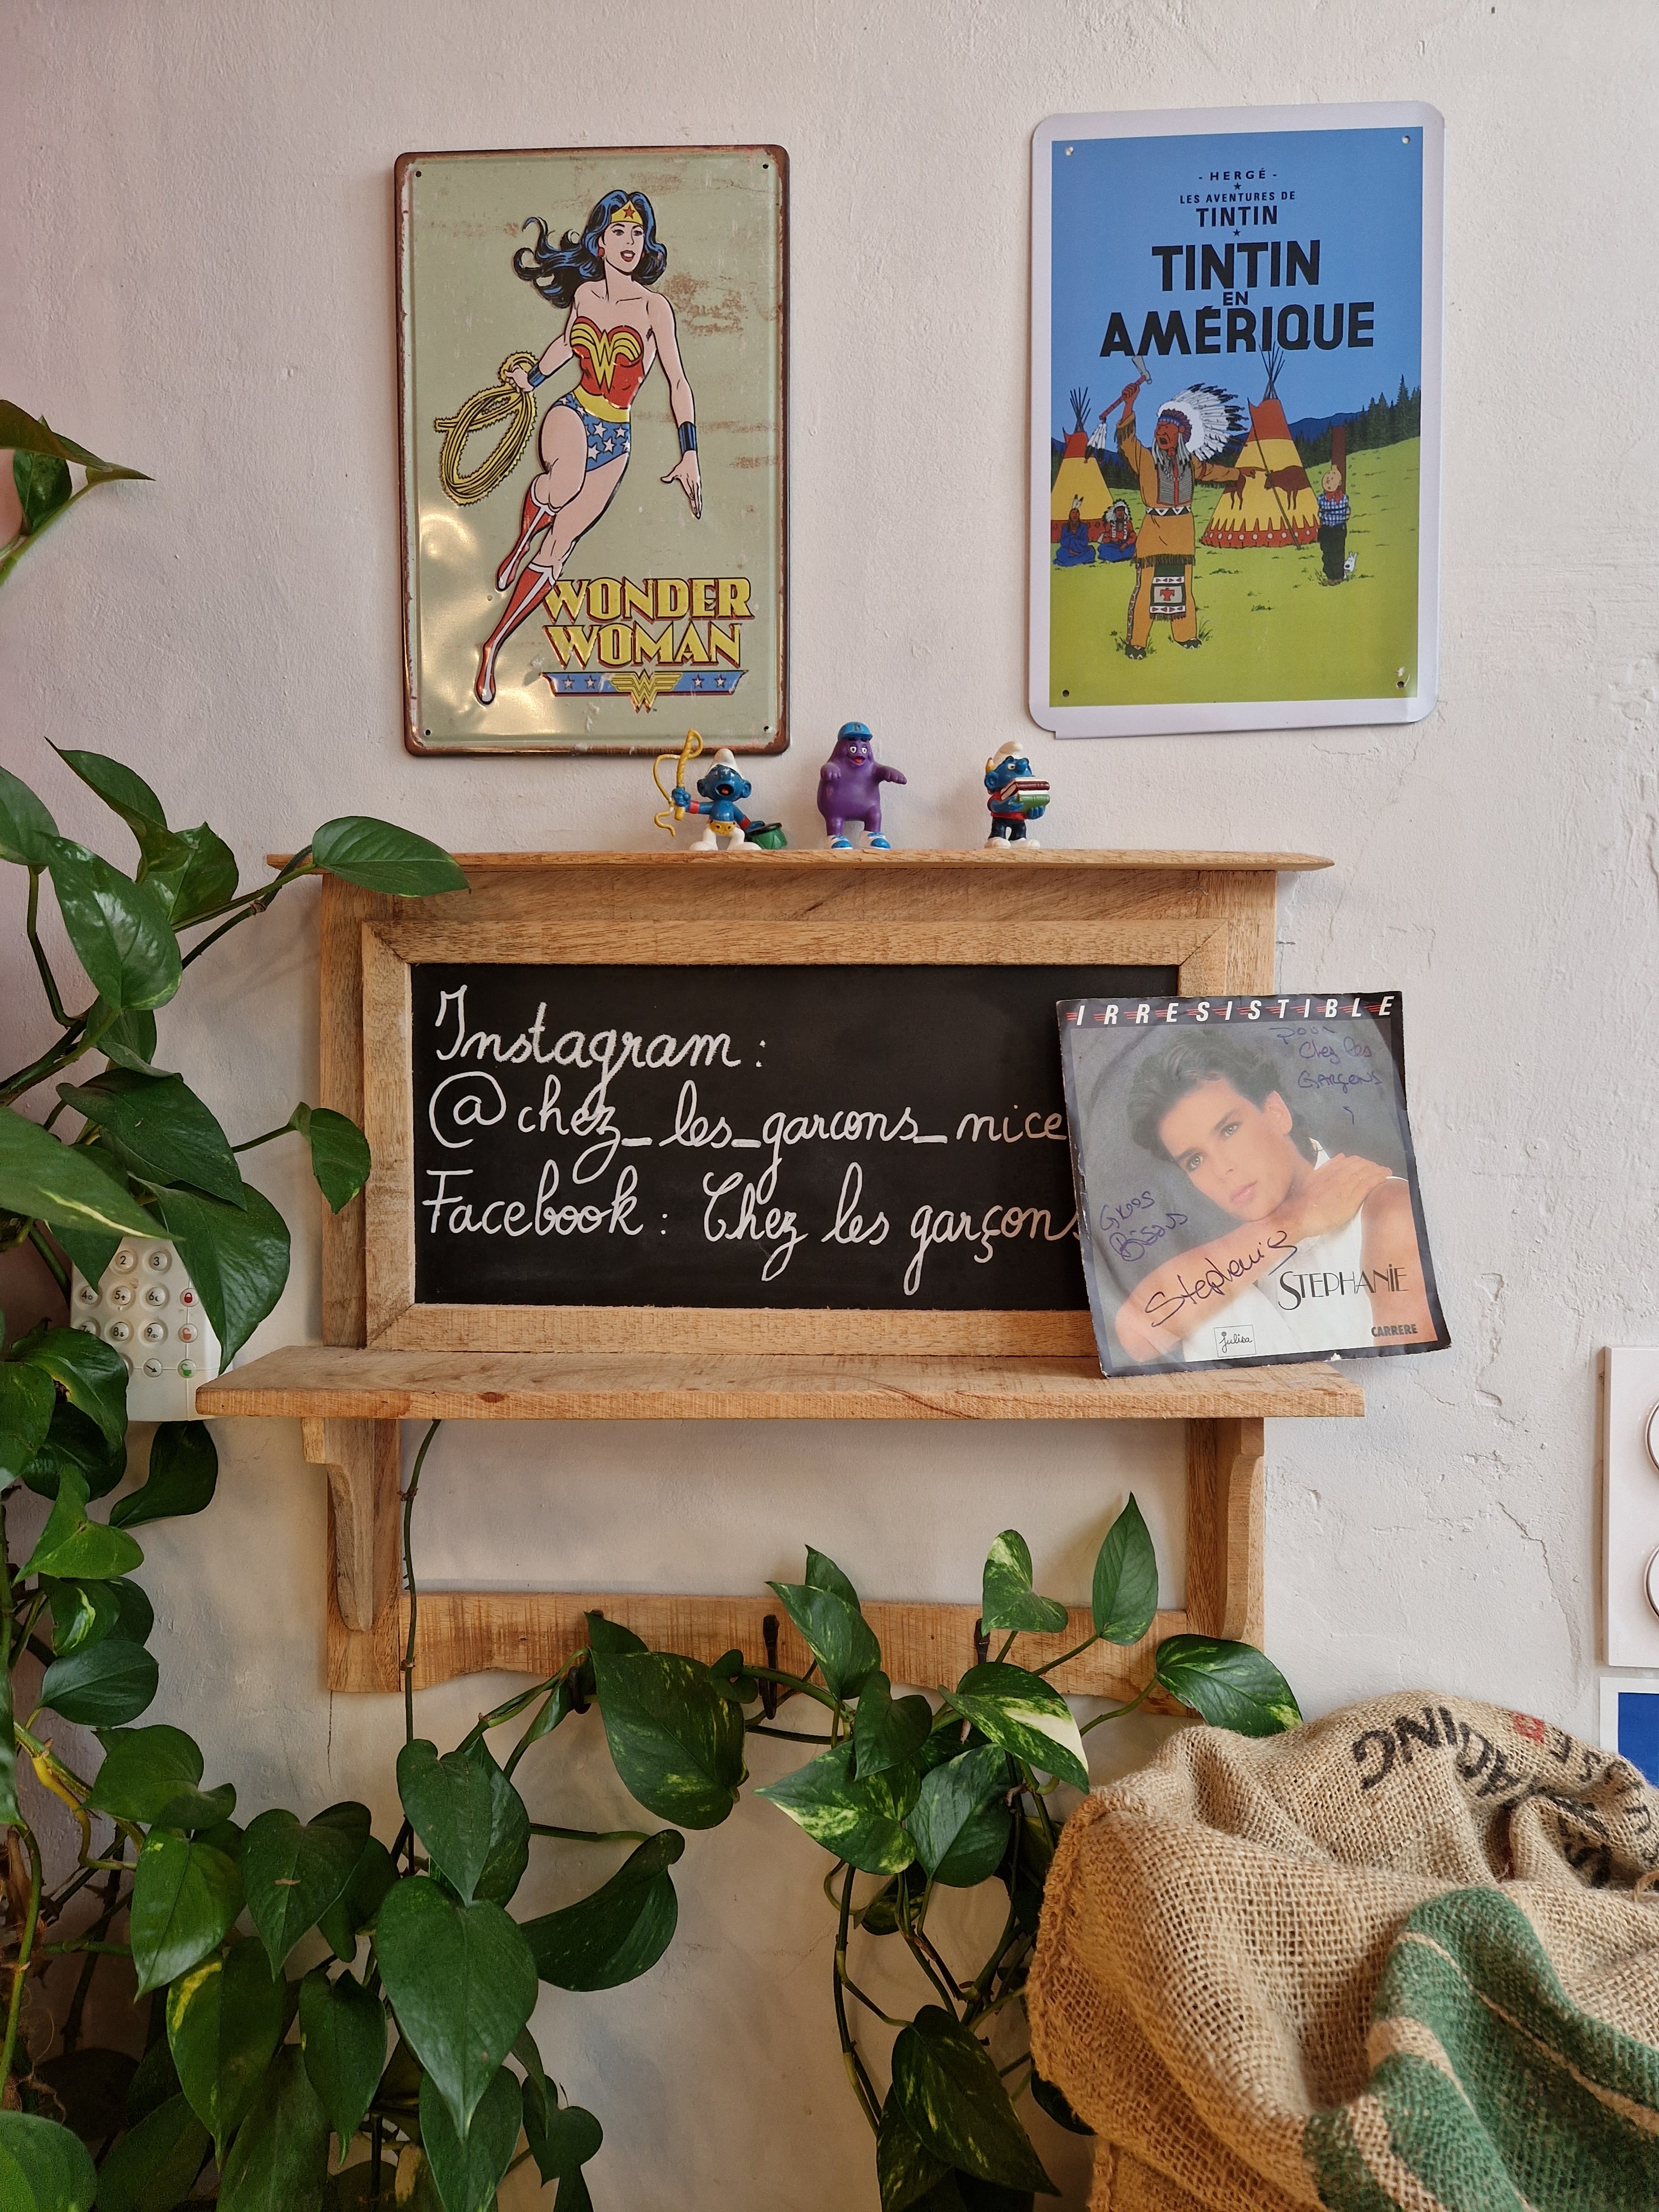 - HERGÉ -
LES AVENTURES DE
TINTIN
TINTIN
EN
AMÉRIQUE
W
WONDER
WOMAN
Instagram :
@chez_les_garcons_nice
Facebook : Chez les garçons
IRRESISTIBLE
Pour
Chez les
Garçons
Gros
Bisous
Stephanie
STEPHANIE
julisa
CARRERE
2 3
4 5 6
8 9